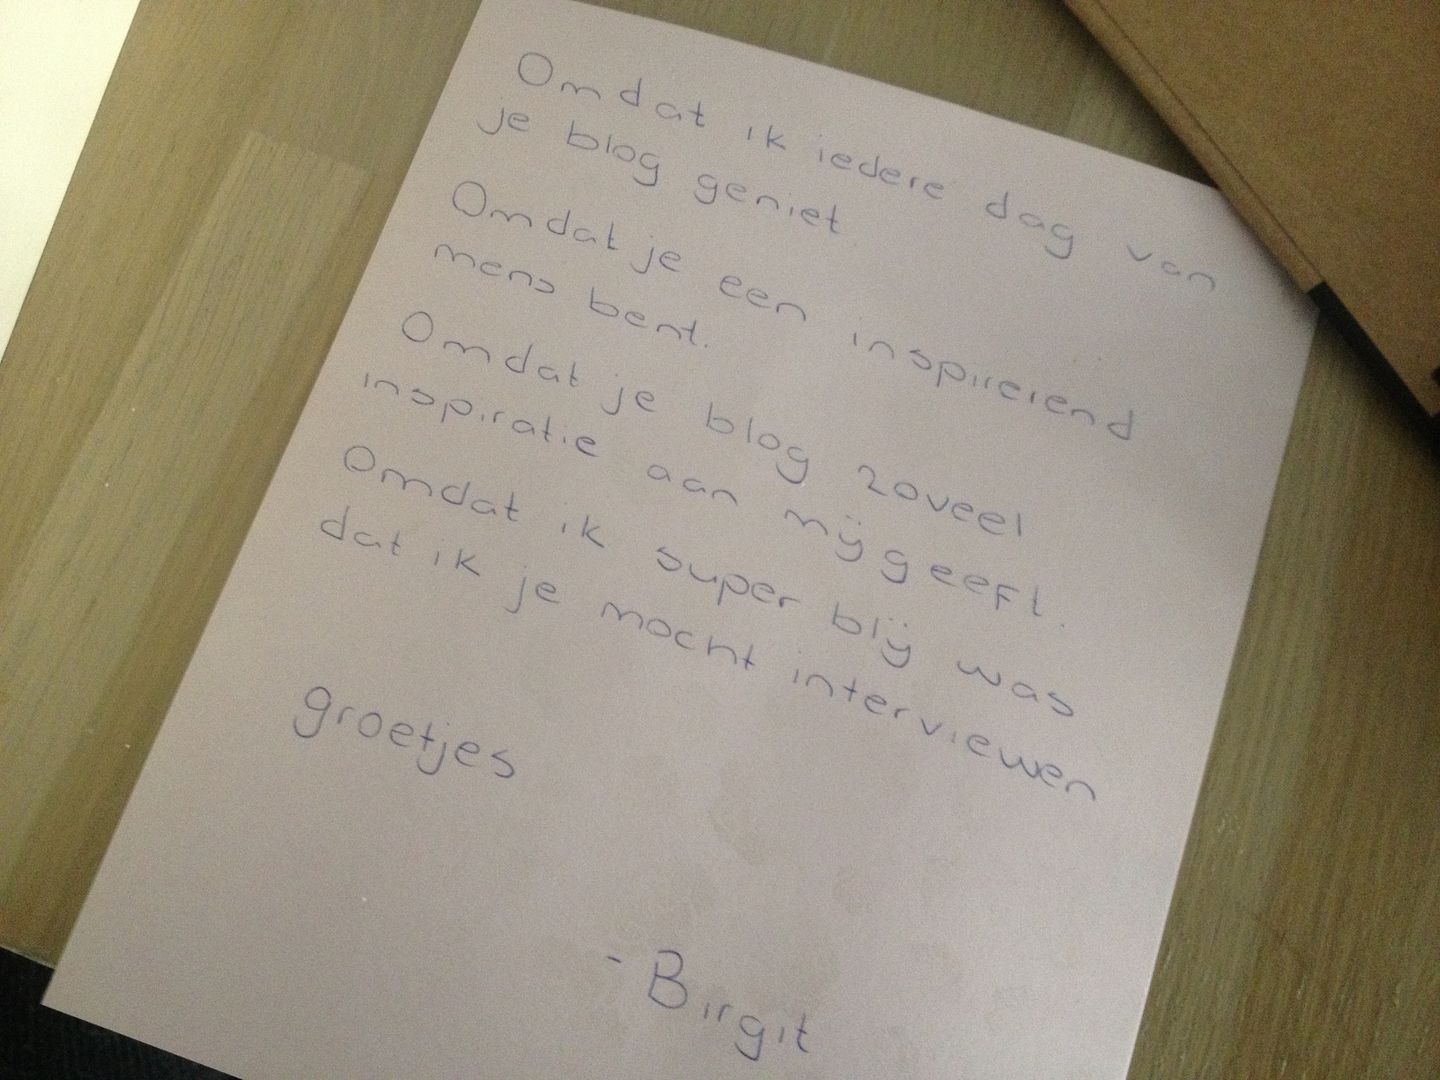 Omdat ik iedere dag van
je blog geniet
Omdat je een inspirerend
mens bent.
Omdat je blog zoveel
inspiratie aan mij geeft.
Omdat ik super blij was
dat ik je mocht interviewen
groetjes
- Birgit